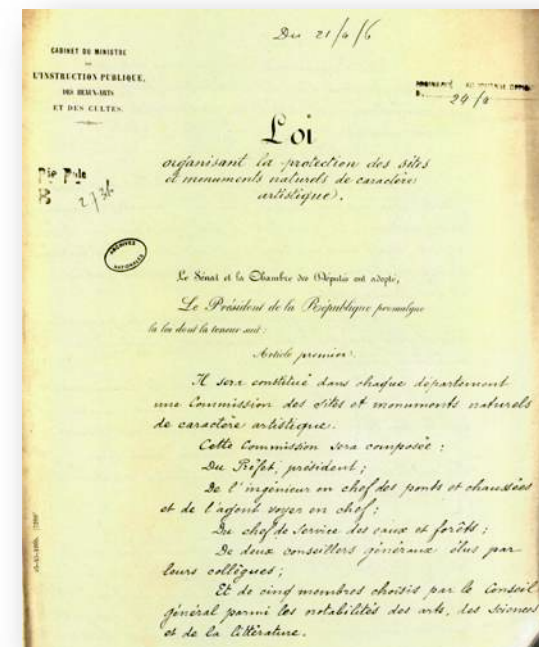 Du 21/4/6
CABINET DU MINISTRE
DE
L'INSTRUCTION PUBLIQUE,
DES BEAUX-ARTS
ET DES CULTES.
24/4
Loi
organisant la protection des sites
et monuments naturels de caractère
artistique.
2/36
ARCHIVES
NATIONALES
Le Sénat et la Chambre des Députés ont adopté,
Le Président de la République promulgue
la loi dont la teneur suit :
Article premier.
Il sera constitué dans chaque département
une Commission des sites et monuments naturels
de caractère artistique.
Cette Commission sera composée :
Du Préfet, président ;
De l'ingénieur en chef des ponts et chaussées
et de l'agent voyer en chef ;
Du chef de service des eaux et forêts ;
De deux conseillers généraux élus par
leurs collègues ;
Et de cinq membres choisis par le Conseil
général parmi les notabilités des arts, des sciences
et de la littérature.